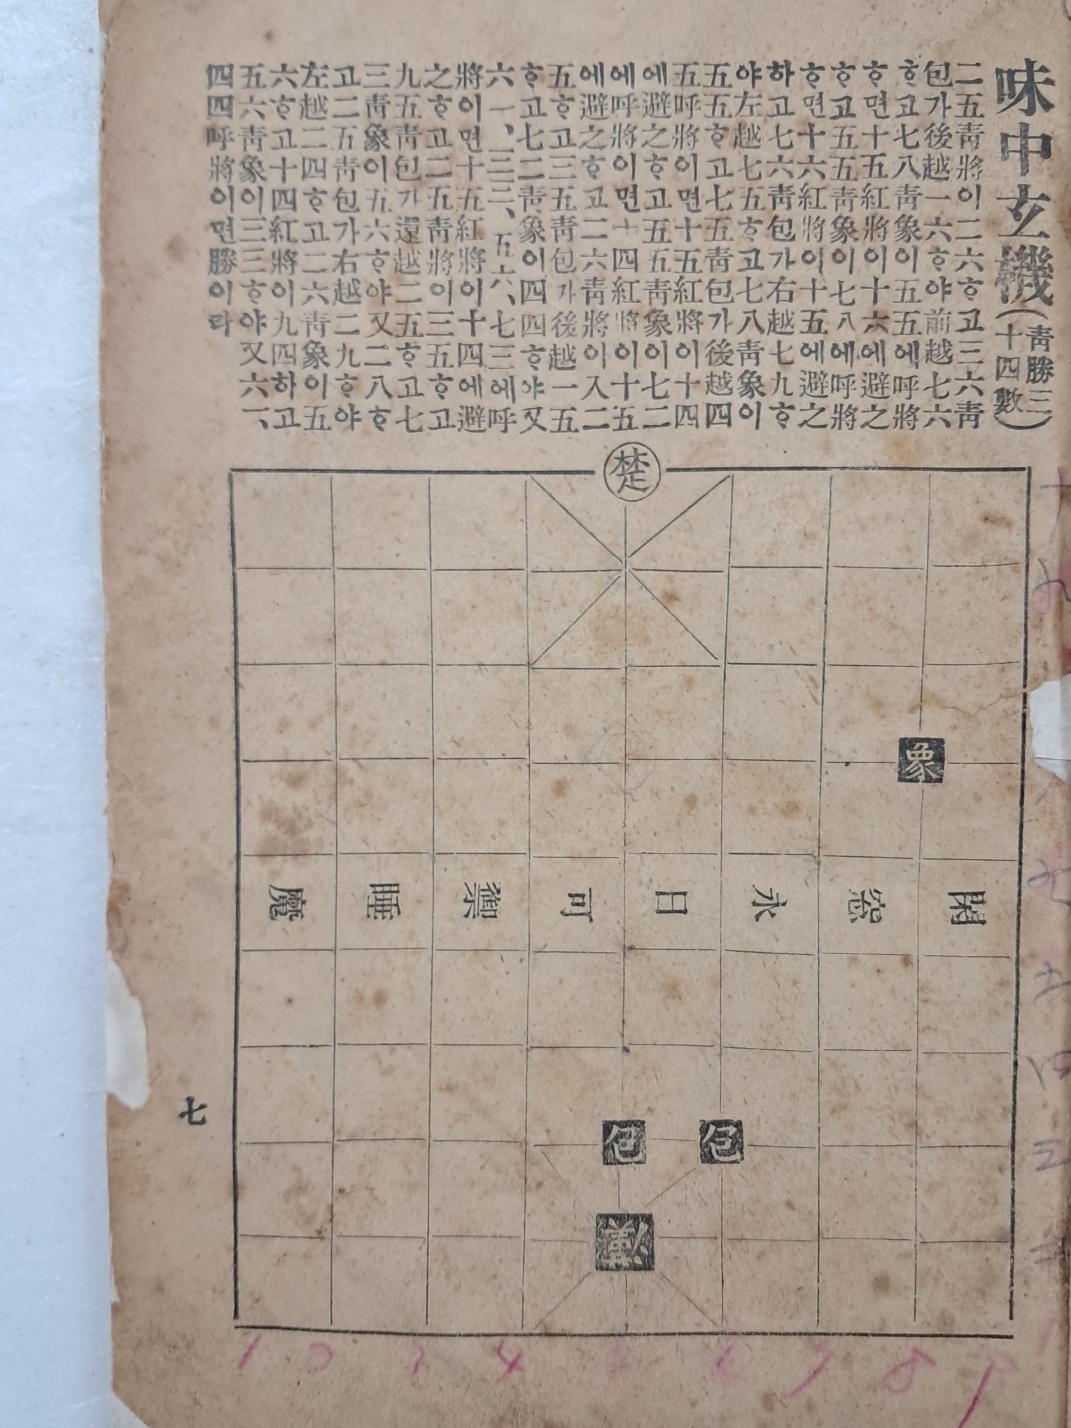 味中玄機(靑勝三十四數)
二五靑將이二六ᄒᆞ고三六靑
包가後越一六ᄒᆞ야前越七六
ᄒᆞ고七八靑象이五五에呼將
ᄒᆞ면十五紅將이十六에避之
ᄒᆞ고五五靑象이七八에呼將
ᄒᆞ면十六紅將이十五에避之
하고七六靑包가右越七九ᄒᆞ
야左越七五ᄒᆞ고七八靑象이
五五ᄒᆞ고七五靑包가後越四
五呼將이면十五紅將이十四
에避之ᄒᆞ고五五靑象이七二
에呼將이면十四紅將이十五
에避之ᄒᆞ고二六靑將이入二
五ᄒᆞ고三五靑包가後越一五
ᄒᆞ고七二靑象이四四ᄒᆞ야又
六一、三三、五六、七三에呼
將이면十五紅將이十四에避
之ᄒᆞ고二五靑將이三五ᄒᆞ고
九五靑包가還越二五ᄒᆞ고七
三靑象이五六ᄒᆞ야又二八ᄒᆞ
고二五靑包가右越二九ᄒᆞ야
左越二四ᄒᆞ고二六靑象이五
六ᄒᆞ고十四紅將이九四하고
五六靑象이三三ᄒᆞ야又六一、
四四呼將이면勝이라
楚
象
閑愁永日可禦睡魔
包 包
漢
七
1 2 3 4 5 6 7 8 9